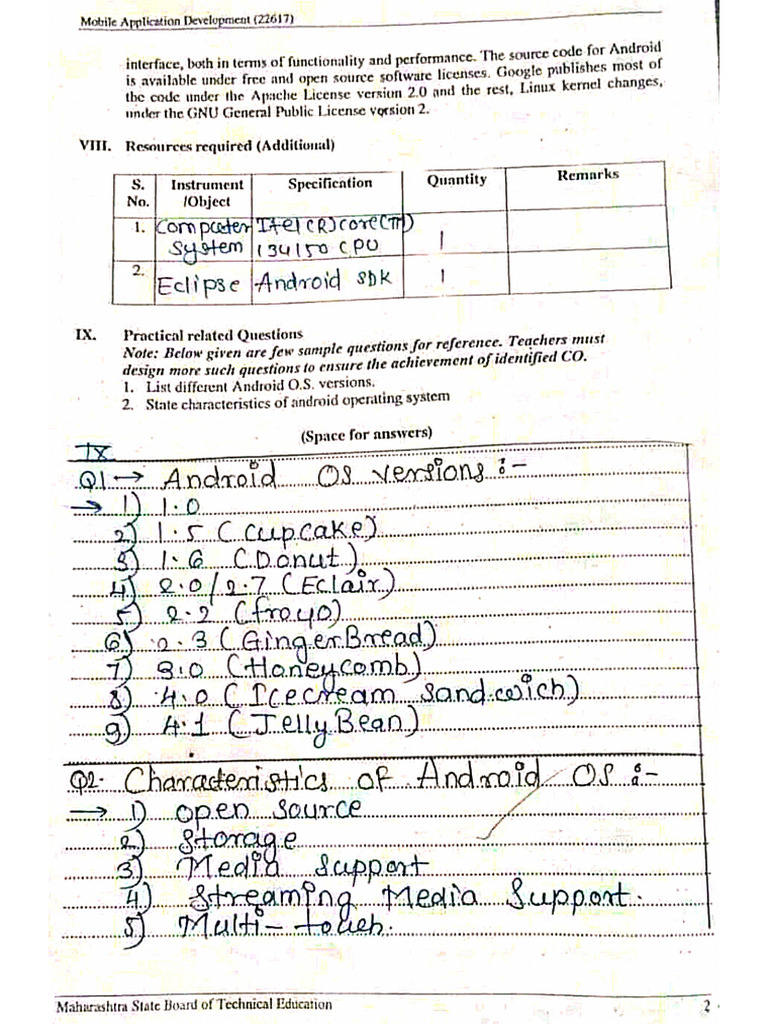 Mobile Application Development (22617)
interface, both in terms of functionality and performance. The source code for Android
is available under free and open source software licenses. Google publishes most of
the code under the Apache License version 2.0 and the rest, Linux kernel changes,
under the GNU General Public License version 2.
VIII. Resources required (Additional)
S. No. Instrument /Object Specification Quantity Remarks
1. Computer System Itel(R)core(TM) 134150 CPU 1
2. Eclipse Android SDK 1
IX. Practical related Questions
Note: Below given are few sample questions for reference. Teachers must
design more such questions to ensure the achievement of identified CO.
1. List different Android O.S. versions.
2. State characteristics of android operating system
(Space for answers)
IX
Q1→ Android OS versions :-
→ 1) 1.0
2) 1.5 (Cupcake)
3) 1.6 (Donut)
4) 2.0/2.7 (Eclair)
5) 2.2 (froyo)
6) 2.3 (GingerBread)
7) 3.0 (Honeycomb)
8) 4.0 (Icecream sandwich)
9) 4.1 (JellyBean)
Q2. Characteristics of Android OS :-
→ 1) open source
2) Storage
3) Media Support
4) Streaming Media Support.
5) Multi-touch.
Maharashtra State Board of Technical Education 2